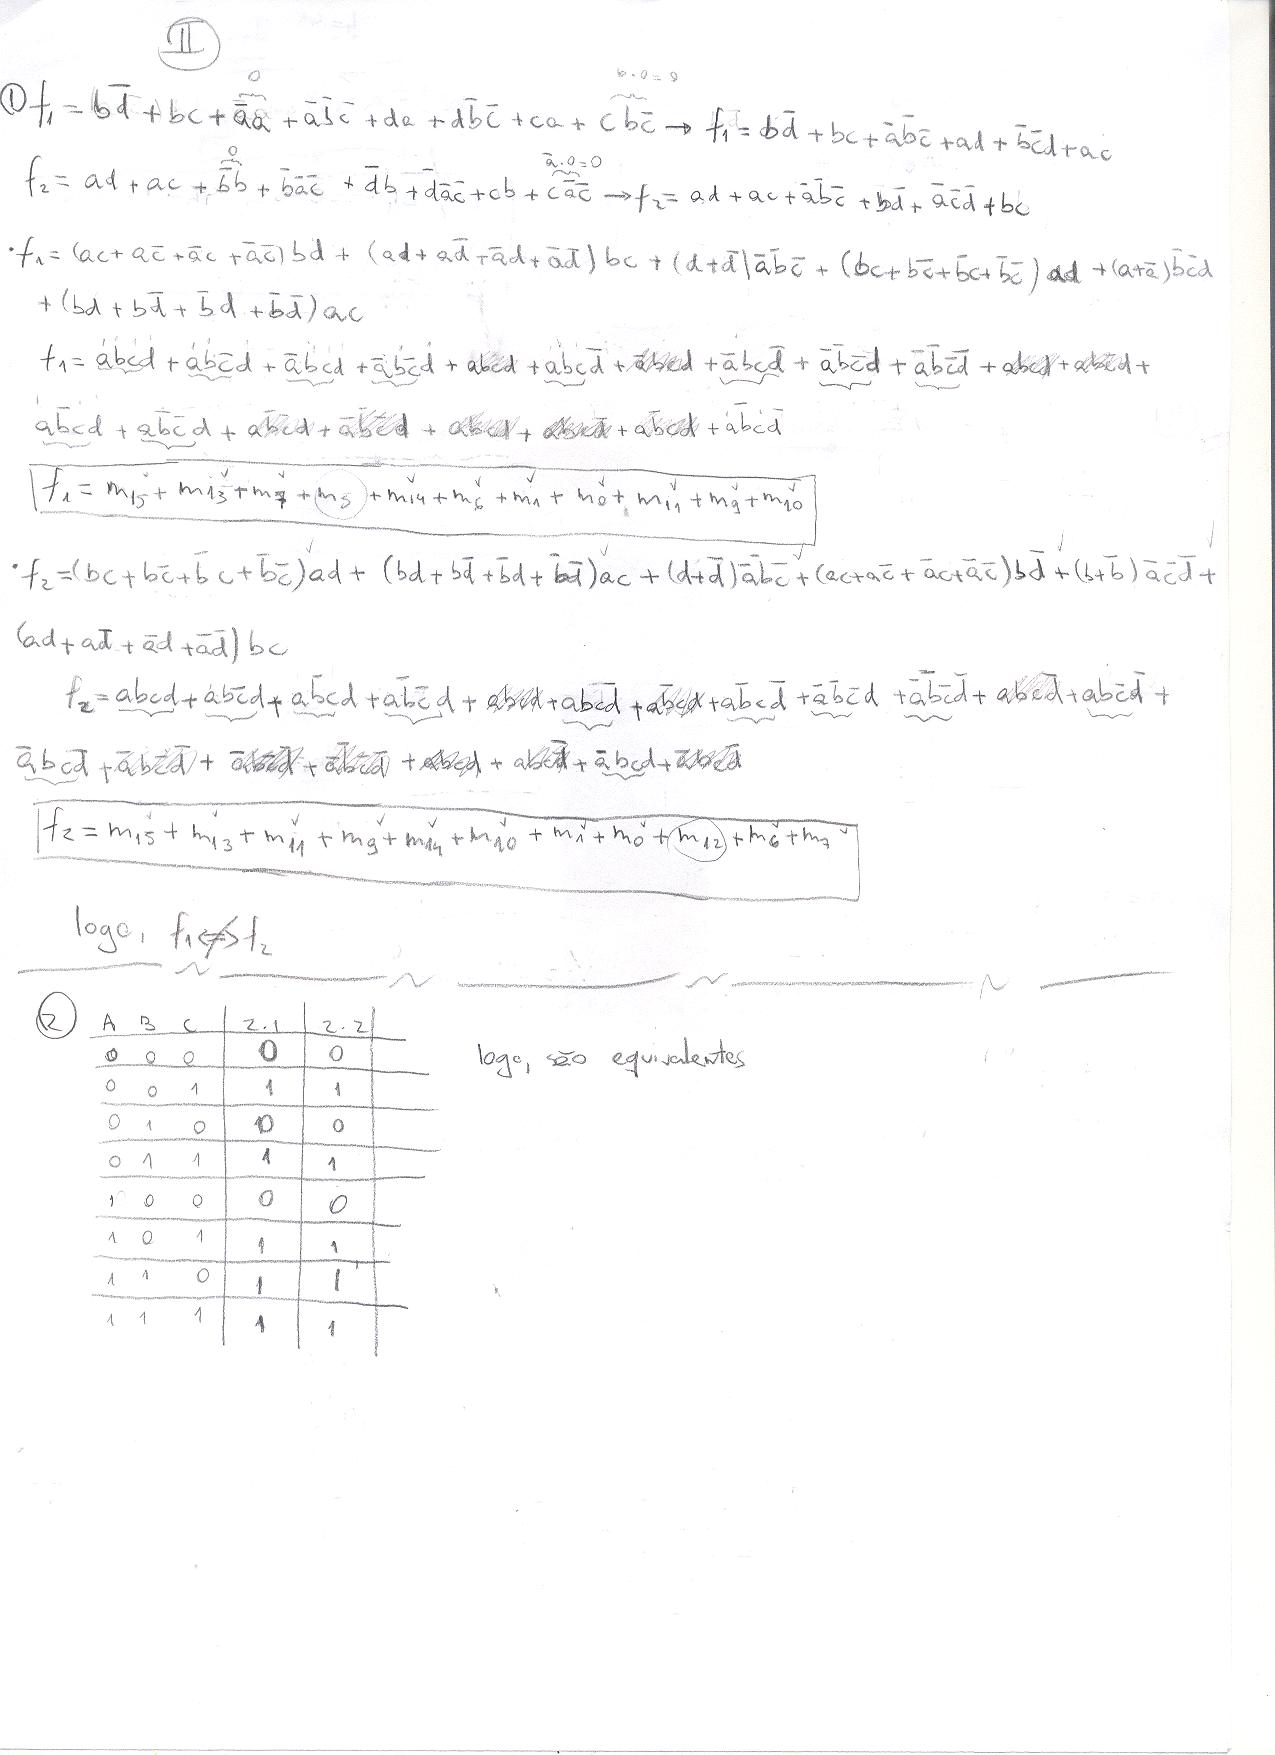 II
0
b·0=0
① f₁ = bd̄ + bc + āa + āb̄c̄ + da + db̄c̄ + ca + cb̄c̄ → f₁ = bd̄ + bc + āb̄c̄ + ad + b̄c̄d + ac
0
ā·0=0
f₂ = ad + ac + b̄b + b̄āc̄ + d̄b + d̄āc̄ + cb + cāc̄ → f₂ = ad + ac + āb̄c̄ + bd̄ + āc̄d̄ + bc
· f₁ = (ac + ac̄ + āc + āc̄) bd + (ad + ad̄ + ād + ād̄) bc + (d + d̄) āb̄c̄ + (bc + bc̄ + b̄c + b̄c̄) ad + (a + ā) b̄c̄d
+ (bd + bd̄ + b̄d + b̄d̄) ac
f₁ = abcd + abc̄d + ābcd + ābc̄d + abcd + abcd̄ + ābcd + ābcd̄ + āb̄c̄d + āb̄c̄d̄ + abcd + abc̄d +
ab̄cd + ab̄c̄d + ab̄c̄d + āb̄c̄d + abcd + abcd̄ + ab̄cd + ab̄cd̄
f₁ = m₁₅ + m₁₃ + m₇ + m₅ + m₁₄ + m₆ + m₁ + m₀ + m₁₁ + m₉ + m₁₀
· f₂ = (bc + bc̄ + b̄c + b̄c̄) ad + (bd + bd̄ + b̄d + b̄d̄) ac + (d + d̄) āb̄c̄ + (ac + ac̄ + āc + āc̄) bd̄ + (b + b̄) āc̄d̄ +
(ad + ad̄ + ād + ād̄) bc
f₂ = abcd + abc̄d + ab̄cd + ab̄c̄d + abcd + abcd̄ + ab̄cd + ab̄cd̄ + āb̄c̄d + āb̄c̄d̄ + abcd̄ + abc̄d̄ +
ābcd̄ + ābc̄d̄ + ābc̄d̄ + āb̄c̄d̄ + abcd + abcd̄ + ābcd + ābcd̄
f₂ = m₁₅ + m₁₃ + m₁₁ + m₉ + m₁₄ + m₁₀ + m₁ + m₀ + m₁₂ + m₆ + m₇
logo, f₁ ⇎ f₂
② A B C 2.1 2.2
0 0 0 0 0
logo, são equivalentes
0 0 1 1 1
0 1 0 0 0
0 1 1 1 1
1 0 0 0 0
1 0 1 1 1
1 1 0 1 1
1 1 1 1 1